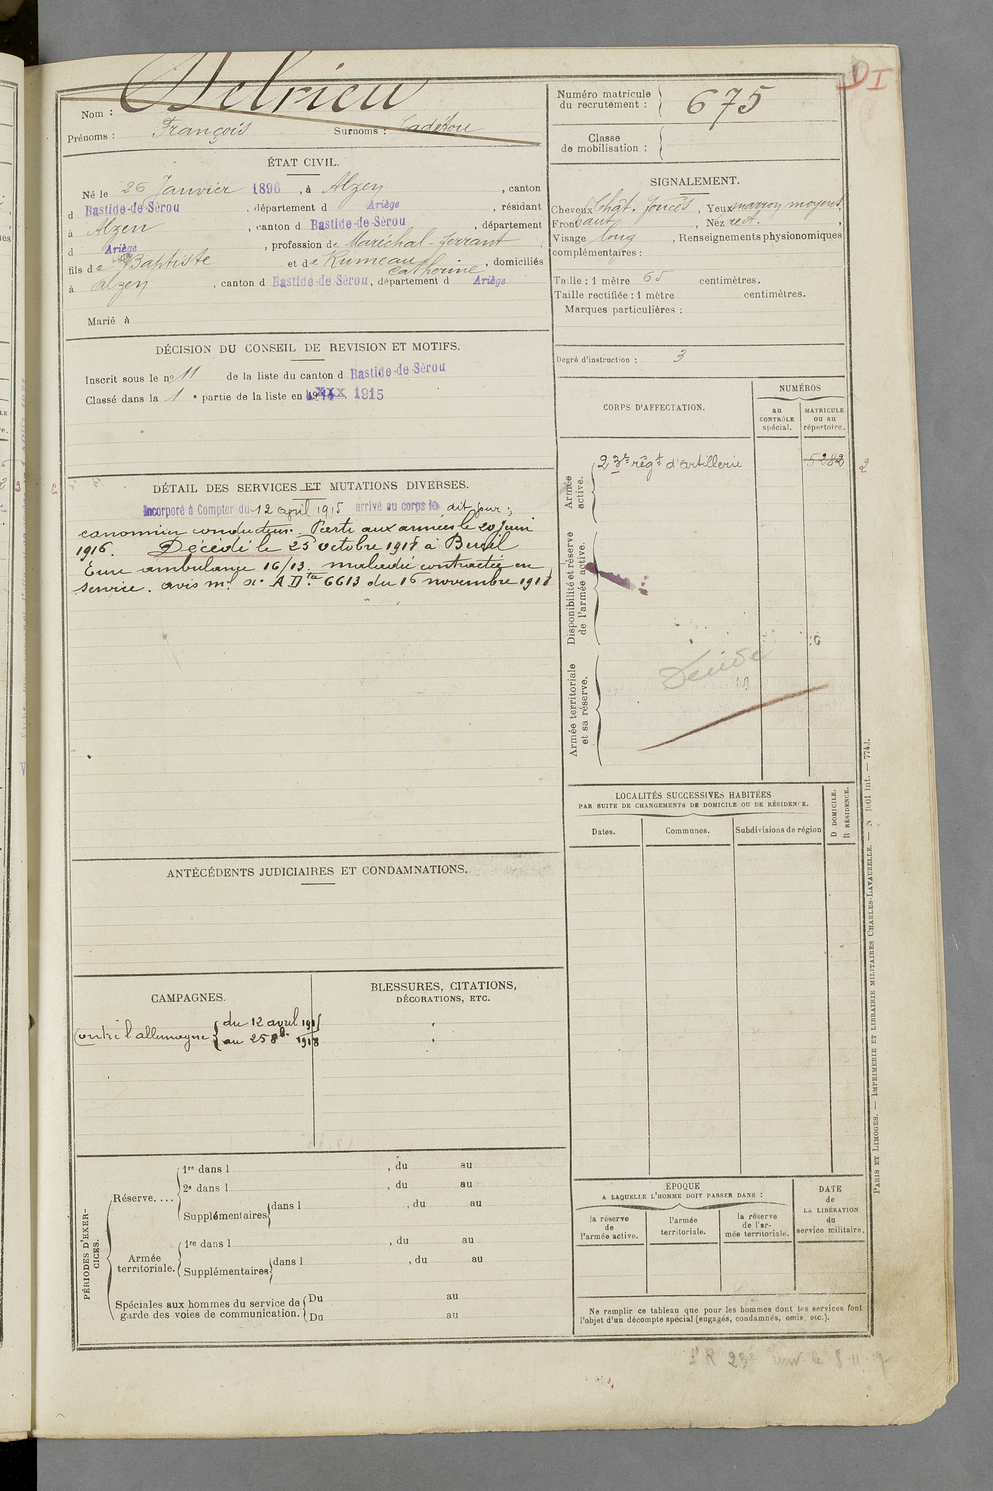 DI
Nom : Delrieu
Prénoms : François Surnoms :
Numéro matricule du recrutement : 675
Classe de mobilisation :
ÉTAT CIVIL.
Né le 26 Janvier 1896, à Alzen, canton
d Bastide-de-Sérou, département d Ariège, résidant
à Alzen, canton d Bastide-de-Sérou, département
d Ariège, profession de Maréchal-ferrant
fils de Baptiste et de Rumeau Catherine, domiciliés
à Alzen, canton d Bastide-de-Sérou, département d Ariège
Marié à
SIGNALEMENT.
Cheveux Chât. foncés, Yeux marron moyens
Front haut, Nez rect.
Visage long, Renseignements physionomiques
complémentaires :
Taille : 1 mètre 65 centimètres.
Taille rectifiée : 1 mètre centimètres.
Marques particulières :
Degré d'instruction : 3
DÉCISION DU CONSEIL DE REVISION ET MOTIFS.
Inscrit sous le nº 11 de la liste du canton d Bastide-de-Sérou
Classé dans la 1e partie de la liste en 1915
CORPS D'AFFECTATION.
NUMÉROS
au CONTRÔLE spécial.
MATRICULE ou au répertoire.
Armée active.
23e régt d'artillerie 5282
Disponibilité et réserve de l'armée active.
Armée territoriale et sa réserve.
Décédé
DÉTAIL DES SERVICES ET MUTATIONS DIVERSES.
Incorporé à Compter du 12 april 1915 arrivé au corps le dit jour ;
canonnier conducteur. Parti aux armées le 20 Juin
1916. Décédé le 25 octobre 1918 à Bueil
Eure ambulance 16/13. maladie contractée en
service. avis ml. n° AD 6613 du 16 novembre 1918
LOCALITÉS SUCCESSIVES HABITÉES
PAR SUITE DE CHANGEMENTS DE DOMICILE OU DE RÉSIDENCE.
Dates.
Communes.
Subdivisions de région
D DOMICILE.
R RÉSIDENCE.
ANTÉCÉDENTS JUDICIAIRES ET CONDAMNATIONS.
CAMPAGNES.
Contre l'allemagne { du 12 avril 1915
au 25 8bre 1918
BLESSURES, CITATIONS,
DÉCORATIONS, ETC.
PÉRIODES D'EXERCICES.
Réserve....
1re dans l , du au
2e dans l , du au
Supplémentaires dans l , du au
Armée territoriale.
1re dans l , du au
Supplémentaires dans l , du au
Spéciales aux hommes du service de garde des voies de communication.
Du au
Du au
ÉPOQUE
A LAQUELLE L'HOMME DOIT PASSER DANS :
la réserve de l'armée active.
l'armée territoriale.
la réserve de l'armée territoriale.
DATE de LA LIBÉRATION du service militaire.
Ne remplir ce tableau que pour les hommes dont les services font
l'objet d'un décompte spécial (engagés, condamnés, omis, etc.).
PARIS ET LIMOGES. — IMPRIMERIE ET LIBRAIRIE MILITAIRES CHARLES-LAVAUZELLE.